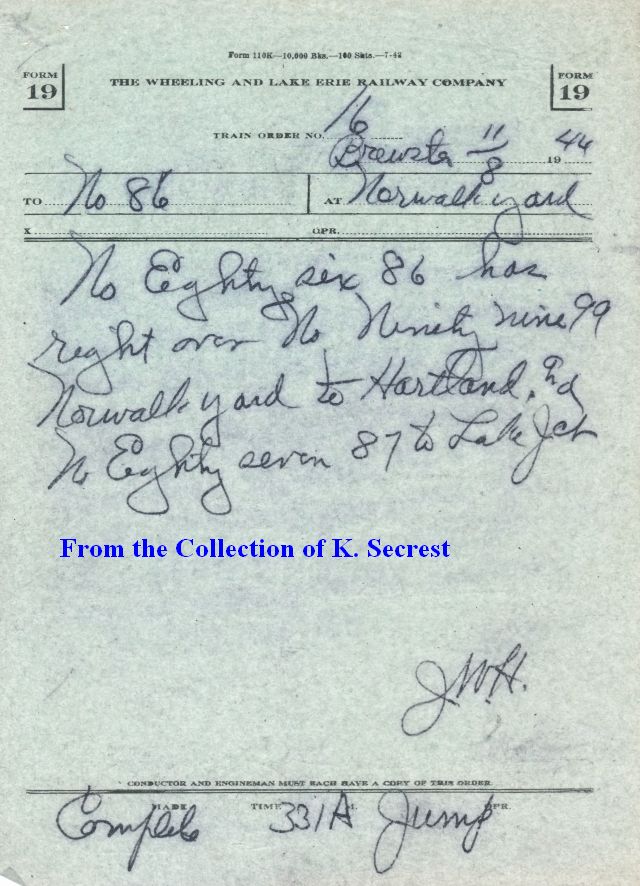 Form 110K—10,000 Bks.—100 Shts.—7-42
FORM 19
THE WHEELING AND LAKE ERIE RAILWAY COMPANY
FORM 19
TRAIN ORDER NO. 16
Brewster 11/8 1944
TO No 86 AT Norwalk yard
X OPR.
No Eighty six 86 has
right over No Ninety nine 99
Norwalk yard to Hartland, and
No Eighty seven 87 to Lake Jct
From the Collection of K. Secrest
J.W.H.
CONDUCTOR AND ENGINEMAN MUST EACH HAVE A COPY OF THIS ORDER.
MADE Complete TIME 331A M. Jump OPR.